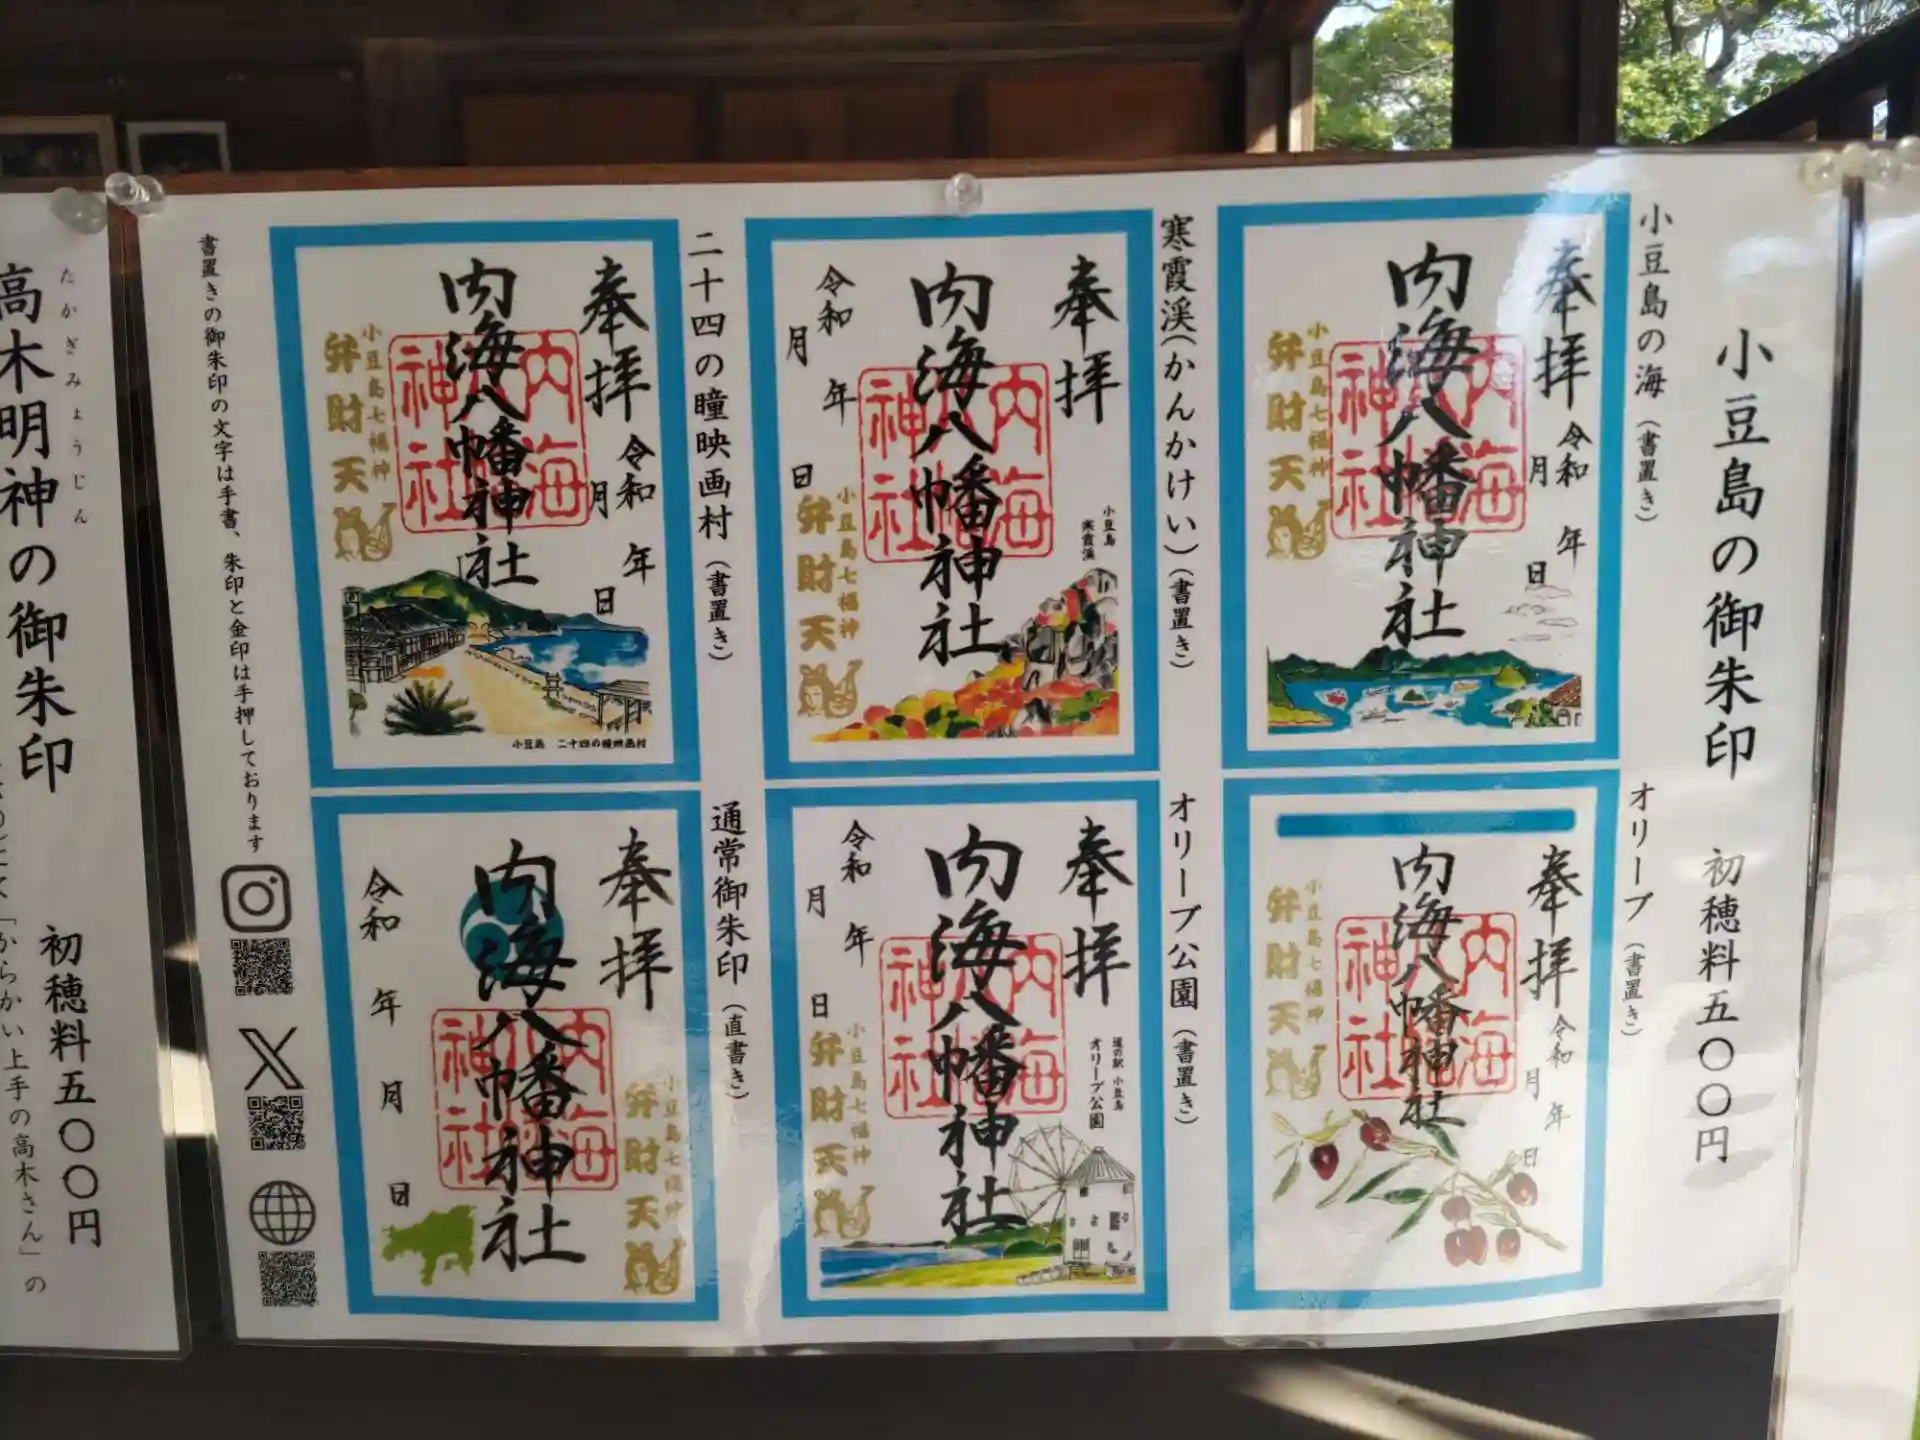 小豆島の御朱印　初穂料五〇〇円
小豆島の海（書置き）
奉拝
令和　年
月　日
内海八幡神社
内海八幡神社
小豆島七福神
弁財天
寒霞渓（かんかけい）（書置き）
奉拝
小豆島
寒霞渓
内海八幡神社
内海八幡神社
令和　年
月　日
小豆島七福神
弁財天
二十四の瞳映画村（書置き）
奉拝
令和　年
月　日
内海八幡神社
内海八幡神社
小豆島七福神
弁財天
小豆島　二十四の瞳映画村
オリーブ（書置き）
奉拝
令和　年
月　日
内海八幡神社
内海八幡神社
小豆島七福神
弁財天
オリーブ公園（書置き）
奉拝
道の駅　小豆島
オリーブ公園
内海八幡神社
内海八幡神社
令和　年
月　日
小豆島七福神
弁財天
通常御朱印（直書き）
奉拝
内海八幡神社
内海八幡神社
小豆島七福神
弁財天
令和　年　月　日
書置きの御朱印の文字は手書、朱印と金印は手押しております
X
たかぎみょうじん
高木明神の御朱印
初穂料五〇〇円
「からかい上手の高木さん」の